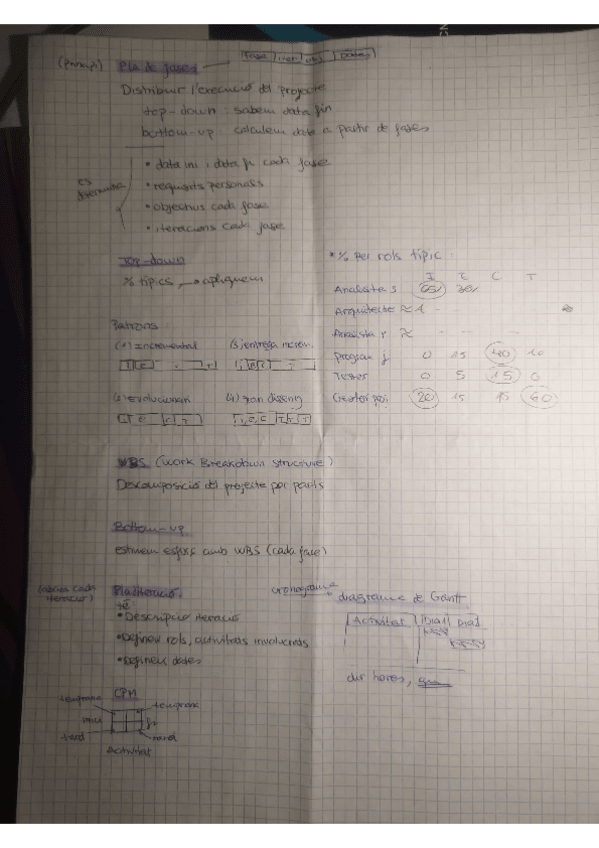 (Principi) Pla de fases → Fase
Distribuir l'execució del projecte
top-down: sabem data fin
bottom-up: calculem data a partir de fases
es determina
• data ini i data fi cada fase
• requisits personals
• objectius cada fase
• iteracions cada fase
Top-down
% típics → apliquem
* % per rols típic:
I E C T
Analistes
Arquitecte ≈
program j 0 15 40 10
Tester 0 5 15 0
Gestor proj 20 15 15 60
Patrons:
(1) Incremental (3) entrega increm.
(4) gran disseny
WBS (Work Breakdown Structure)
Descomposició del projecte por parts
Bottom-up
estimem esforç amb WBS (cada fase)
(abans cada iteració) Pla iteració:
té:
• Descripció iteració
• Defineix rols, activitats involucrats
• Defineix dates
cronograma
diagrama de Gantt
Activitat Dia1 Dia2
dur hores,
CPM
Activitat